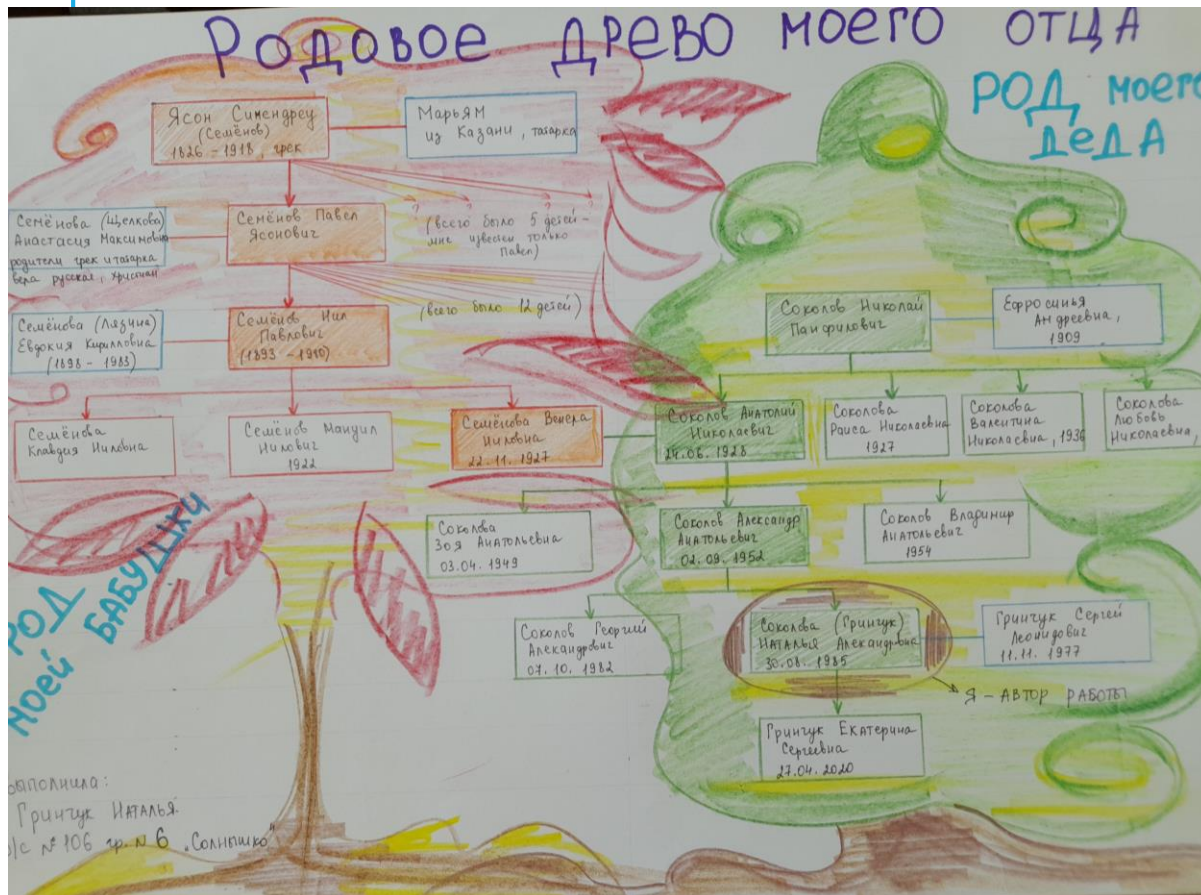 Родовое древо моего отца
Род моего
деда
Ясон Симендреу
(Семёнов)
1826 - 1918, грек
Марьям
из Казани, татарка
Семёнова (Щелкова)
Анастасия Максимовна
родители грек и татарка
вера русская, христиан
Семёнов Павел
Ясонович
? ? ? ?
(всего было 5 детей -
мне известен только
Павел)
Семёнова (Лязина)
Евдокия Кирилловна
(1898 - 1983)
Семёнов Нил
Павлович
(1893 - 1910)
(всего было 12 детей)
Соколов Николай
Панфилович
Ефросинья
Андреевна,
1909
Семёнова
Клавдия Ниловна
Семёнов Мандил
Нилович
1922
Семёнова Венера
Ниловна
22.11.1927
Соколов Анатолий
Николаевич
24.06.1928
Соколова
Раиса Николаевна
1927
Соколова
Валентина
Николаевна, 1936
Соколова
Любовь
Николаевна,
Соколова
Зоя Анатольевна
03.04.1949
Соколов Александр
Анатольевич
02.09.1952
Соколов Владимир
Анатольевич
1954
Род
моей бабушки
Соколов Георгий
Александрович
07.10.1982
Соколова (Гринчук)
Наталья Александровна
30.08.1985
Гринчук Сергей
Леонидович
11.11.1977
Я - автор работы
Гринчук Екатерина
Сергеевна
27.04.2020
выполнила:
Гринчук Наталья
д/с № 106 гр. № 6 "Солнышко"